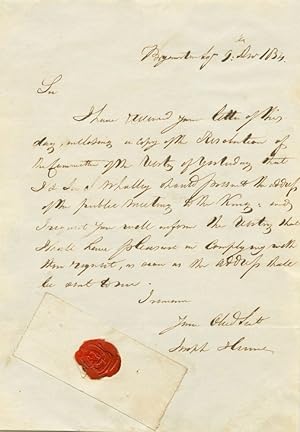 Bryanston Sq 9th Dec 1834
Sir
I have received your letter of this
day, enclosing a copy of the Resolution of
the Committee of the Vestry of yesterday that
I & Sir S Whalley should present the address
of the public meeting to the King: and
I request you will inform the Vestry that
I shall have pleasure in complying with
their request, as soon as the address shall
be sent to me.
I remain
Your Obed Sevt
Joseph Hume